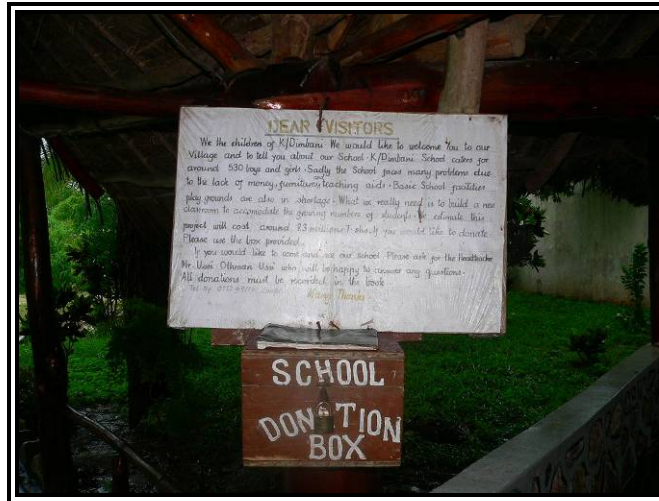 DEAR VISITORS
We the children of K/Dimbani We would like to welcome You to our
Village and to tell you about our School. K/Dimbani School caters for
around 530 boys and girls. Sadly the School faces many problems due
to the lack of money, furniture, and teaching aids. Basic School facilities
play grounds are also in shortage. What we really need is to build a new
classroom to accomodate the growing numbers of students. We estimate this
project will cost around 3.3 millions T. shs. If you would like to donate
Please use the box provided.
If you would like to come and see our school Please ask for the Headteacher
Mr. Ussi Othman Ussi who will be happy to answer any questions.
All donations must be recorded in the book
Many Thanks
SCHOOL
DONATION
BOX